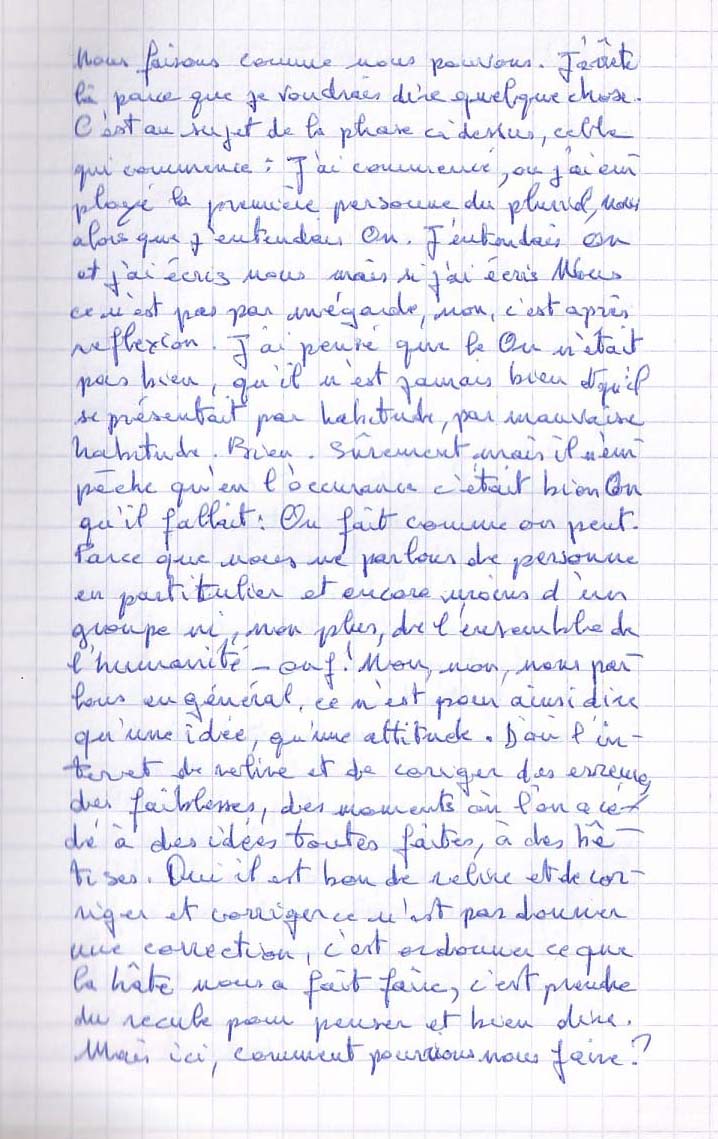 Nous faisons comme nous pouvons. J'arrête
là parce que je voudrais dire quelque chose.
C'est au sujet de la phrase ci dessus, celle
qui commence : J'ai commencé, ou j'ai em
ployé la première personne du pluriel, nous
alors que j'entendais On. J'entendais on
et j'ai écris nous mais si j'ai écris Nous
ce n'est pas par mégarde, non, c'est après
reflexion. J'ai pensé que le On n'était
pas bien, qu'il n'est jamais bien et qu'il
se présentait par habitude, par mauvaise
habitude. Bien. Sûrement mais il n'em
pêche qu'en l'occurance c'était bien On
qu'il fallait : On fait comme on peut.
Parce que nous ne parlons de personne
en particulier et encore moins d'un
groupe ni, non plus, de l'ensemble de
l'humanité – ouf! Non, non, nous par
lons en général, ce n'est pour ainsi dire
qu'une idée, qu'une attitude. D'où l'in-
teret de relire et de coriger des erreurs,
des faiblesses, des moments où l'on a cé-
dé à des idées toutes faites, à des bê-
tises. Oui il est bon de relire et de cor-
riger et corriger ce n'est pas donner
une correction, c'est ordonner ce que
la hâte nous a fait faire, c'est prendre
du recule pour penser et bien dire.
Mais ici, comment pourrions nous faire?